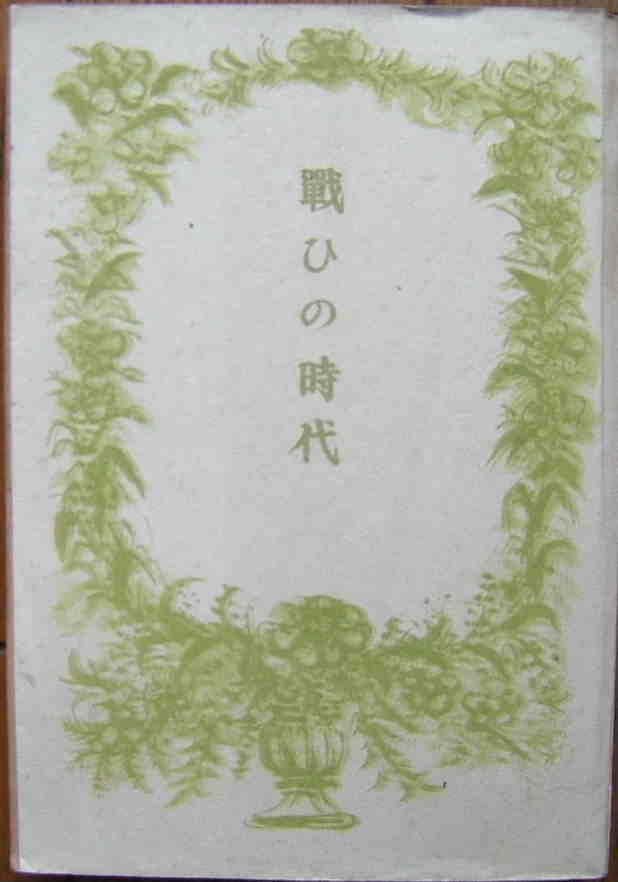 戰ひの時代